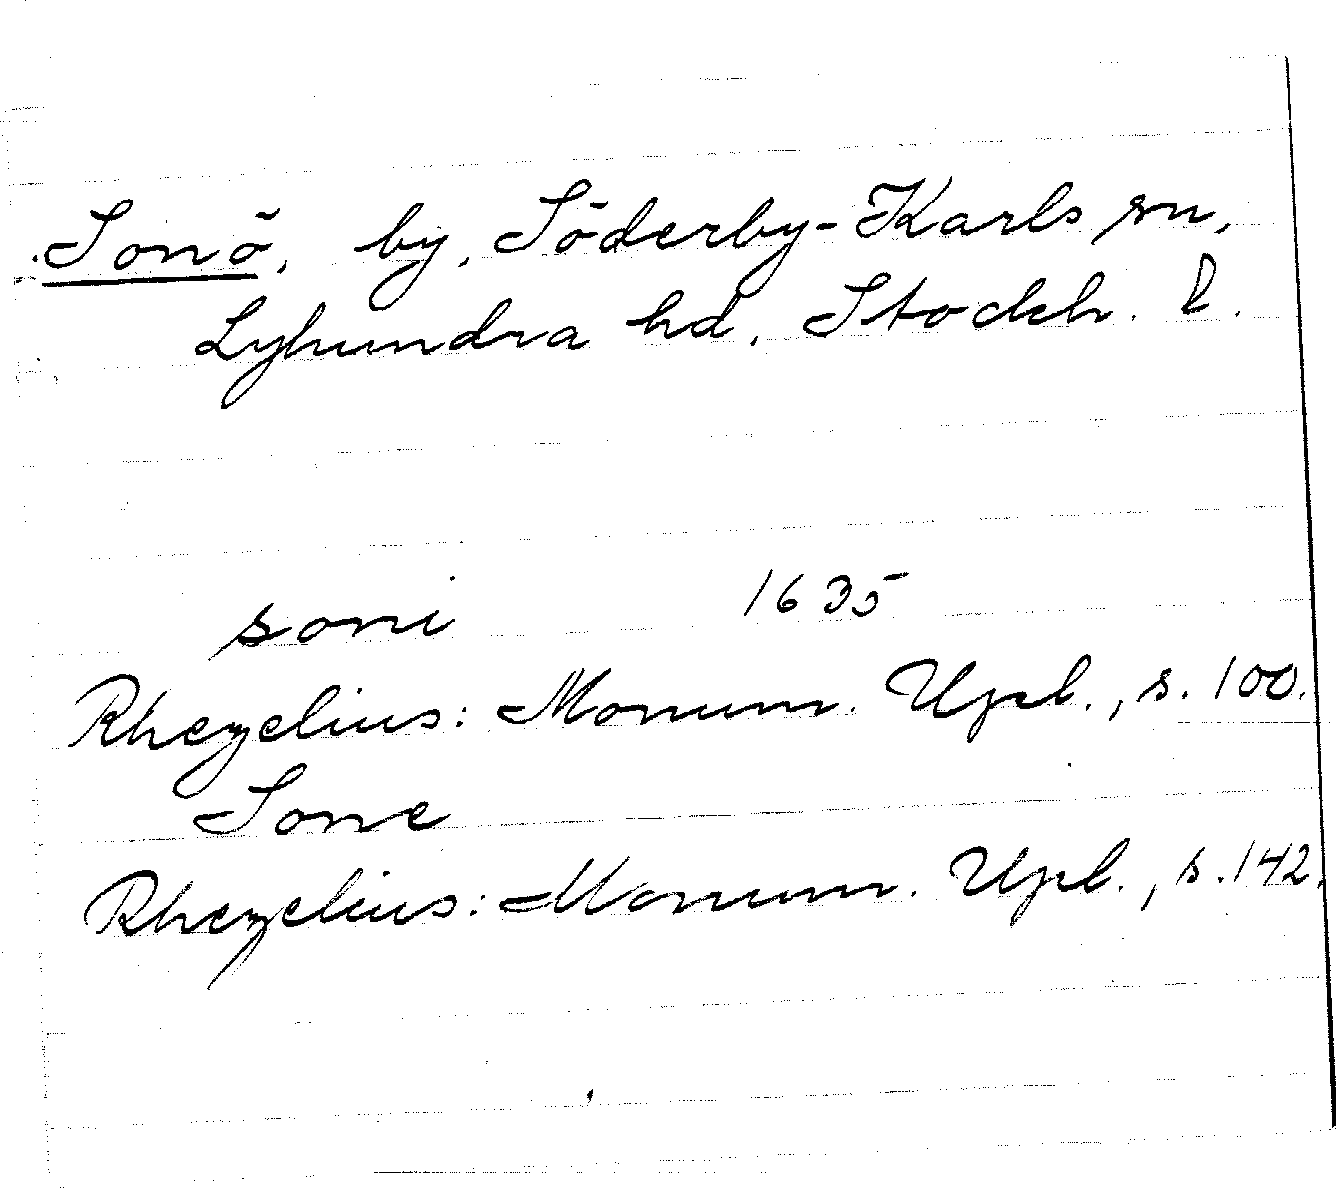 Sonö, by, Söderby-Karls sn,
Lyhundra hd, Stockh. l.
soni 1635
Rhezelius: Monum. Upl., s. 100.
Sone
Rhezelius: Monum. Upl., s. 142.